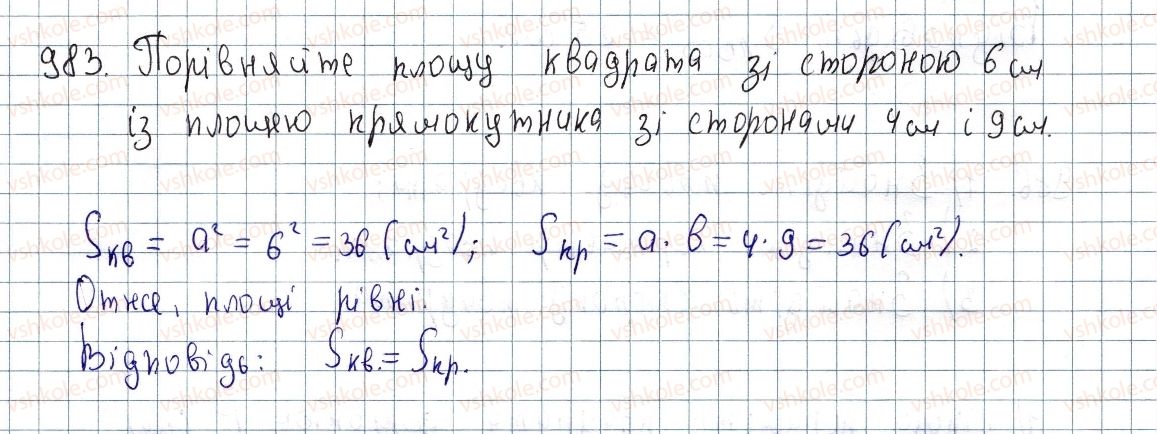 983. Порівняйте площу квадрата зі стороною 6 см
із площею прямокутника зі сторонами 4 см і 9 см.
Sкв = a² = 6² = 36 (см²); Sкр = a · b = 4 · 9 = 36 (см²).
Отже, площі рівні.
Відповідь: Sкв. = Sкр.